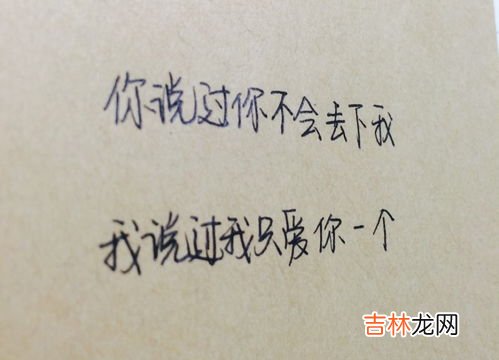 你说过你不会去下我
我说过我只爱你一个
吉林龙网